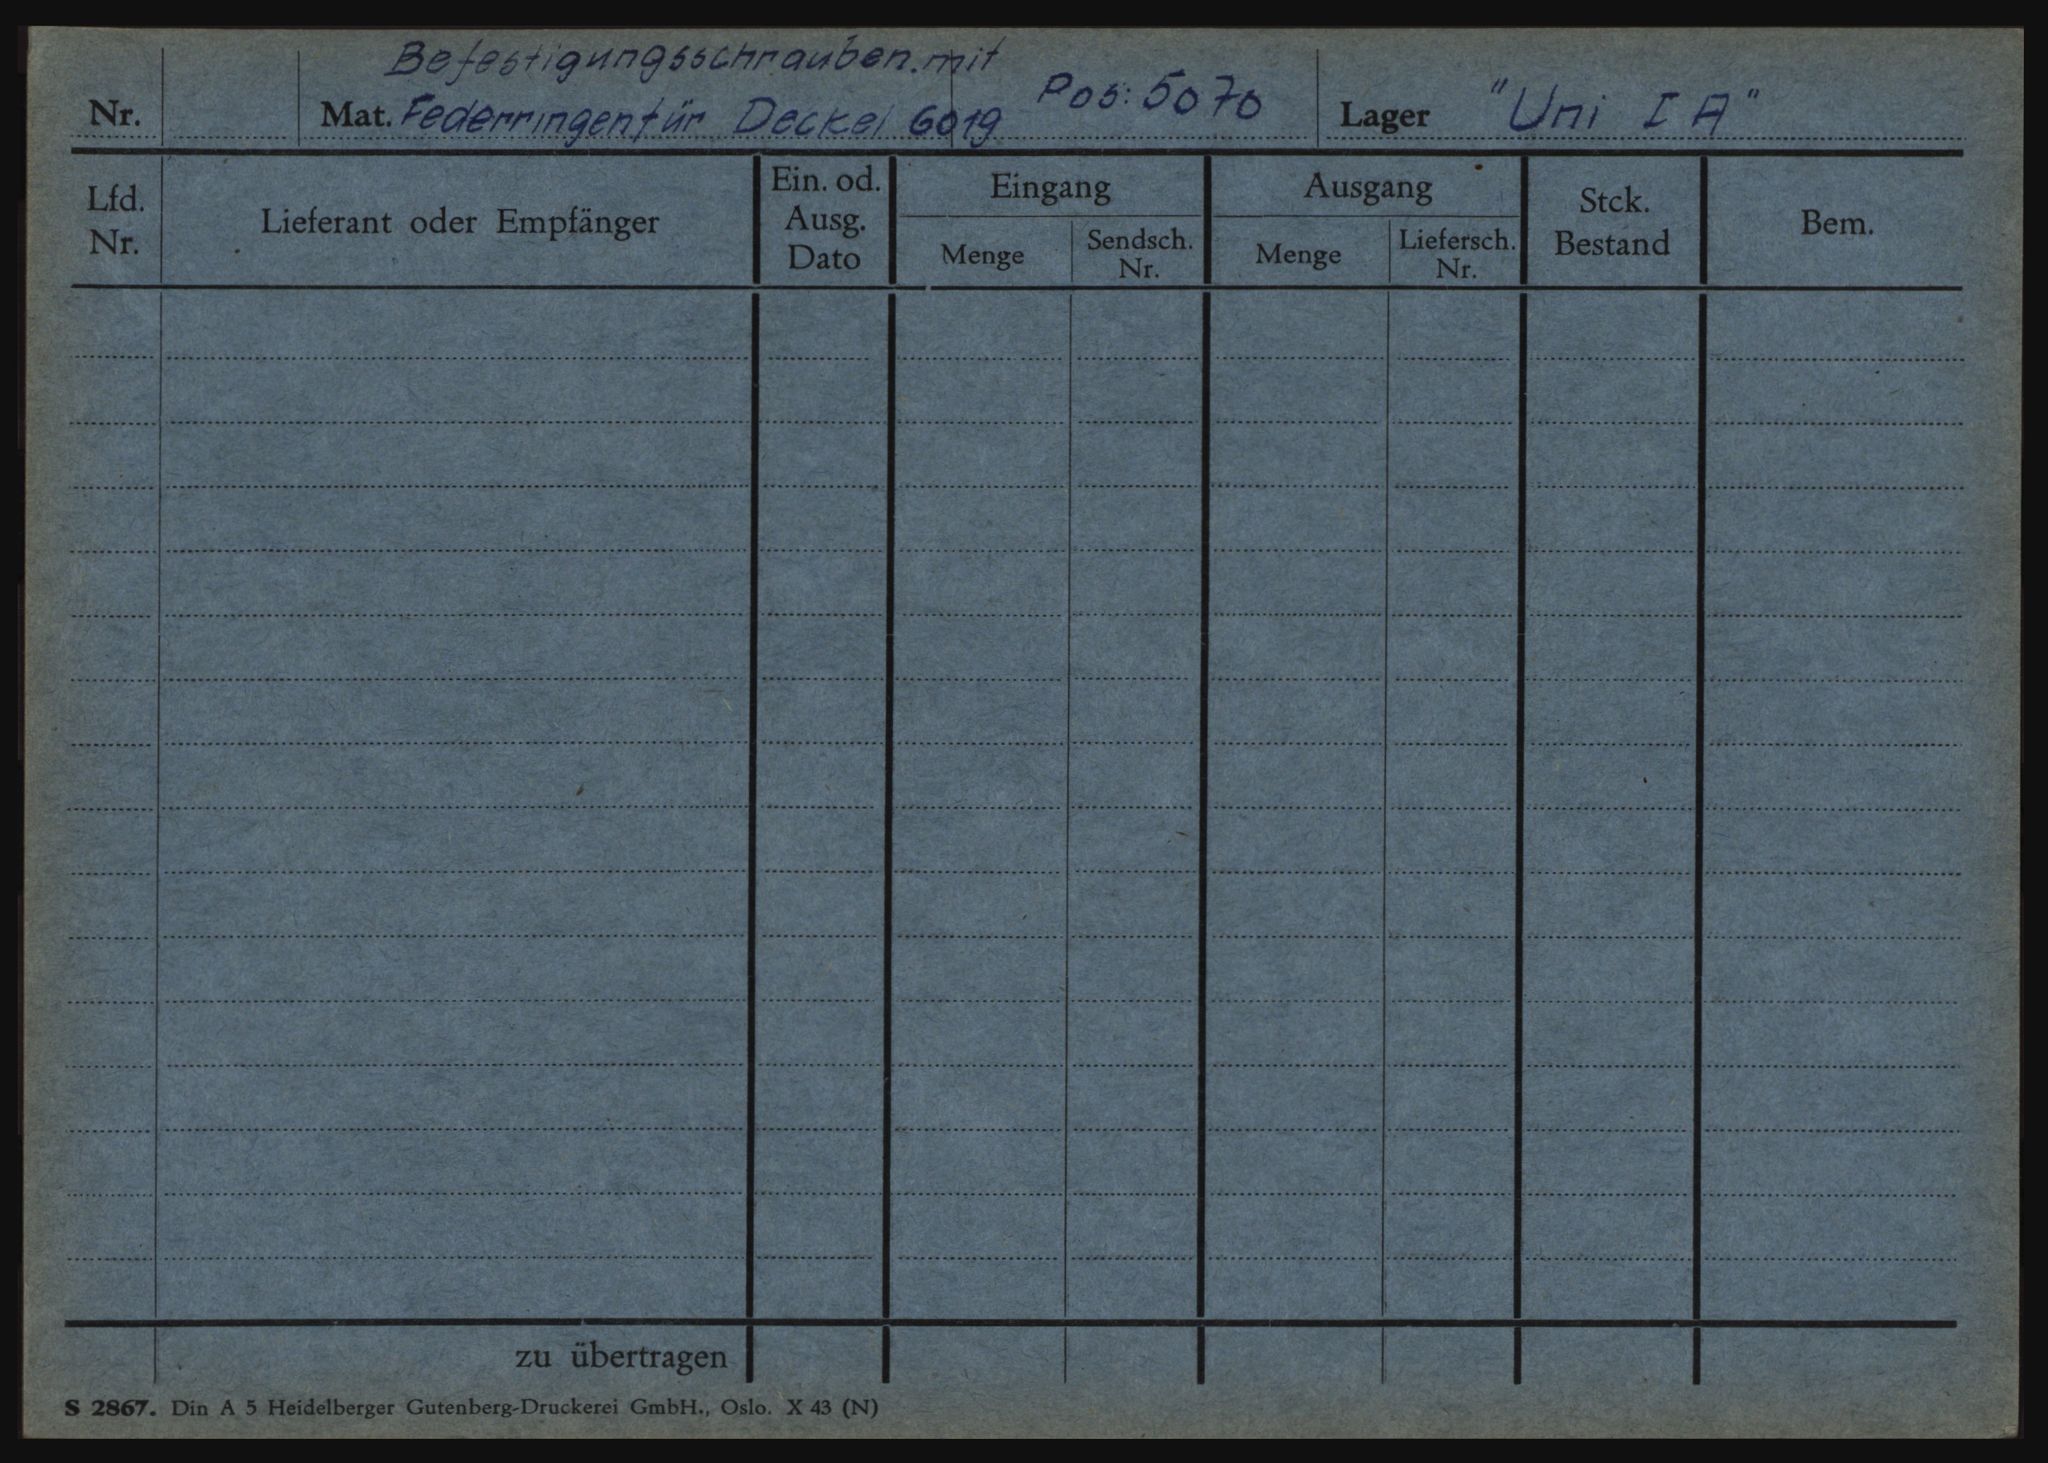 Befestigungsschrauben.mit
Nr. Mat. Federringen für Deckel 6019 Pos: 5070 Lager "Uni I A"
Lfd. Nr. Lieferant oder Empfänger Ein. od. Ausg. Dato Eingang Ausgang Stck. Bestand Bem.
Menge Sendsch. Nr. Menge Liefersch. Nr.
zu übertragen
S 2867. Din A 5 Heidelberger Gutenberg-Druckerei GmbH., Oslo. X 43 (N)